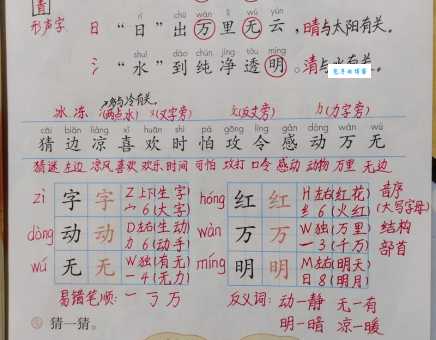 青
rì chū wàn lǐ wú yún
形声字 日 “日”出万里无云，晴与太阳有关。
shuǐ dào chún jìng tòu míng
氵 “水”到纯净透明。清与水有关。
冰 冻 (两点水) 与冷有关。 (又字旁) 攵(反文旁) (力字旁)
cāi biān liáng xǐ huān shí pà gōng lìng gǎn dòng wàn wú
猜 边 凉 喜 欢 时 怕 攻 令 感 动 万 无
猜谜 左边 凉风 喜欢 欢乐 时间 可怕 攻打 口令 感动 动物 万里 无边
zì 字 字 Z 上下(生字) 宀 6 (大字) hóng 红 红 H 左右(红花) 纟 6 (火红) 音序 (大写字母)
dòng 动 动 D 左右(生动) 力 6 (动手) wàn 万 万 W 独(万里) 一 3 (千万) 结构
wú 无 无 W 独(有无) 一 4 (无力) míng 明 明 M 左右(明天) 日 8 (明月) 部首
易错笔顺：一 丂 万 反义词：动一静 无一有
猜一猜。 明一暗 凉一暖